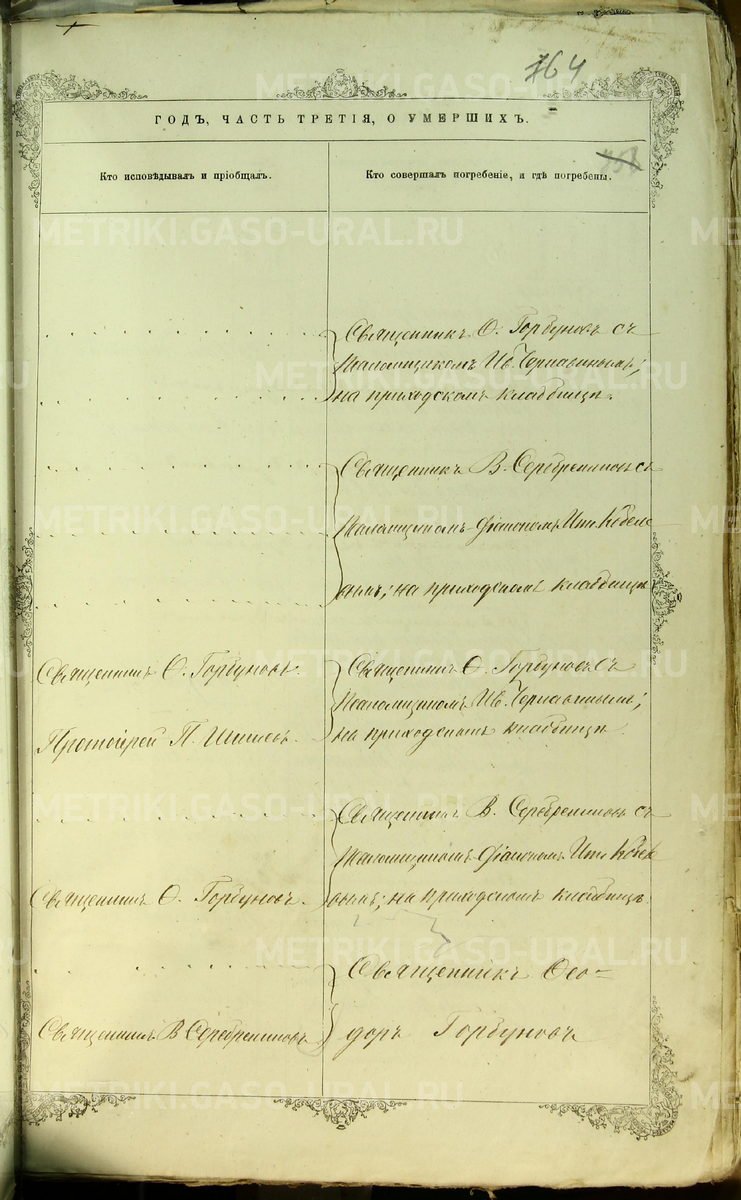 764
ГОДЪ, ЧАСТЬ ТРЕТІЯ, О УМЕРШИХЪ.
Кто исповѣдывалъ и пріобщалъ.
Кто совершалъ погребеніе, и гдѣ погребены.
Священникъ Ѳ. Горбуновъ съ
Псаломщикомъ Ив.
на приходскомъ кладбищѣ.
Священникъ В. Серебрениковъ съ
Псаломщикомъ-Діакономъ
на приходскомъ кладбищѣ
Священникъ Ѳ. Горбуновъ.
Протоіерей П.
Священникъ Ѳ. Горбуновъ съ
Псаломщикомъ Ив.
на приходскомъ кладбищѣ.
Священникъ В. Серебрениковъ съ
Псаломщикомъ-Діакономъ
на приходскомъ кладбищѣ.
Священникъ Ѳ. Горбуновъ.
Священникъ Ѳео-
доръ Горбуновъ
Священникъ В Серебрениковъ
METRIKI.GASO-URAL.RU